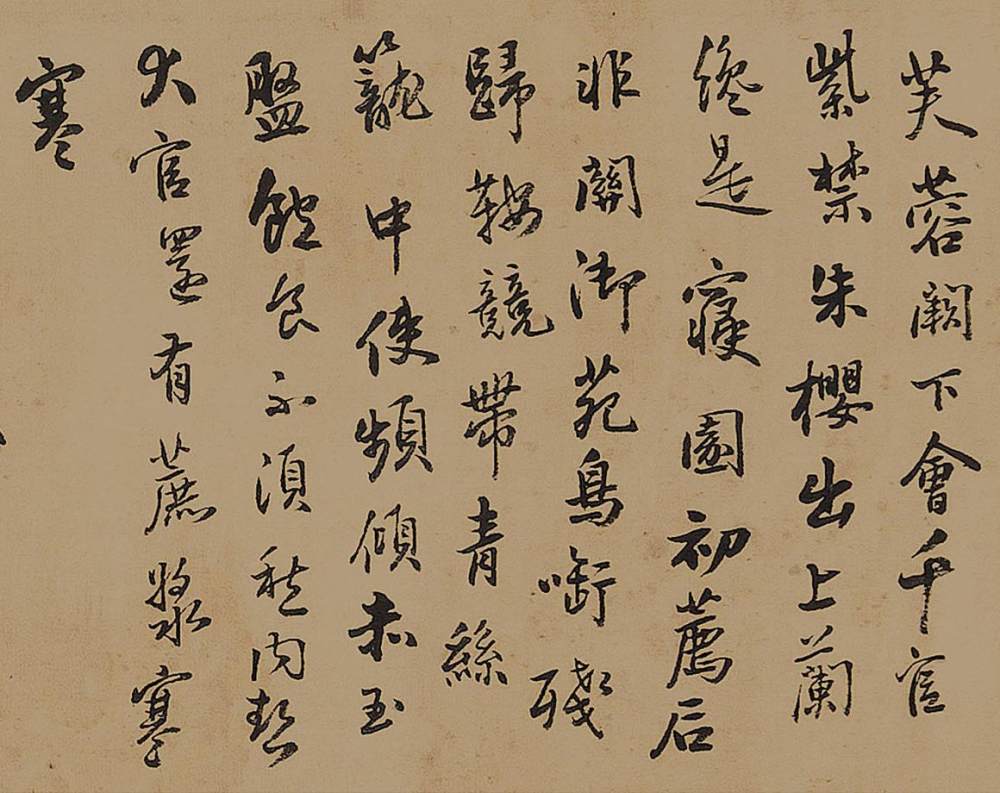 芙蓉闕下會千官
紫禁朱櫻出上蘭
纔是寢園初薦后
非關御苑鳥啣殘
歸鞍競帶青絲
籠中使頻傾赤玉
盤飽食不須愁内熱
大官還有蔗漿寒
寒